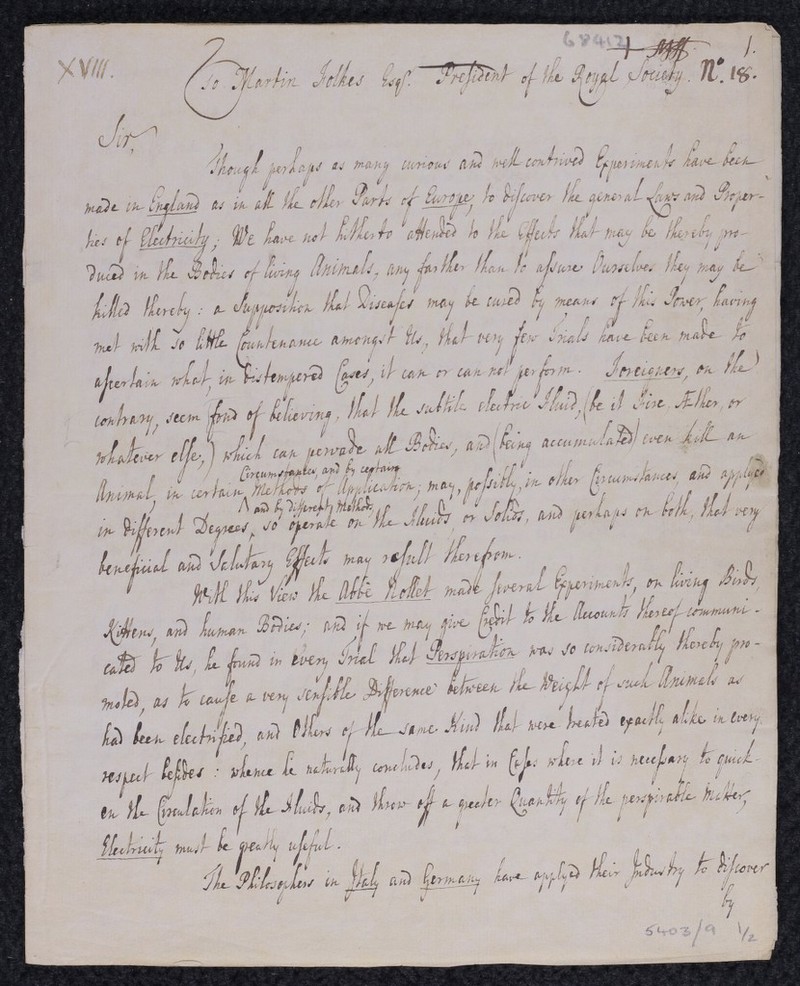 68412
1.
XVIII.
To Martin Folkes Esqr. President of the Royal Society. No. 18.
Sir,
Though perhaps as many curious and well contrived Experiments have been
made in England as in all the other Parts of Europe, to discover the general Laws and Proper-
ties of Electricity; We have not hitherto attended to the Effects that may be thereby pro-
duced in the Bodies of living Animals, any farther than to assure Ourselves they may be
killed thereby: a Supposition that Diseases may be cured by means of this Power, having
met with so little Countenance amongst Us, that very few Trials have been made to
ascertain what, in distempered Cases, it can or can not perform. Foreigners, on the
contrary, seem fond of believing, that the subtile electric Fluid, (be it Fire, Æther, or
whatever else,) which can pervade all Bodies, and (being accumulated) even kill an
Circumstances, and by certain
Animal, in certain Methods of Application; may, possibly, in other Circumstances, and applyed
and by different Methods,
in different Degrees, so operate on the Fluids, or Solids, and perhaps on both, that very
beneficial and Salutary Effects may result therefrom.
With this View the Abbè Nollet made several Experiments, on living Birds,
Kittens, and human Bodies; and if we may give Credit to the Accounts thereof communi-
cated to Us, he found in every Trial that Perspiration was so considerably thereby pro-
moted, as to cause a very sensible Difference between the Weight of such Animals as
had been electrified, and Others of the same Kind that were treated exactly alike in every
respect besides: whence he naturally concludes, that in Cases where it is necessary to quick-
en the Circulation of the Fluids, and throw off a greater Quantity of the perspirable Matter,
Electricity must be greatly useful.
The Philosophers in Italy and Germany have applyed their Industry to discover
by
5403/9 1/2